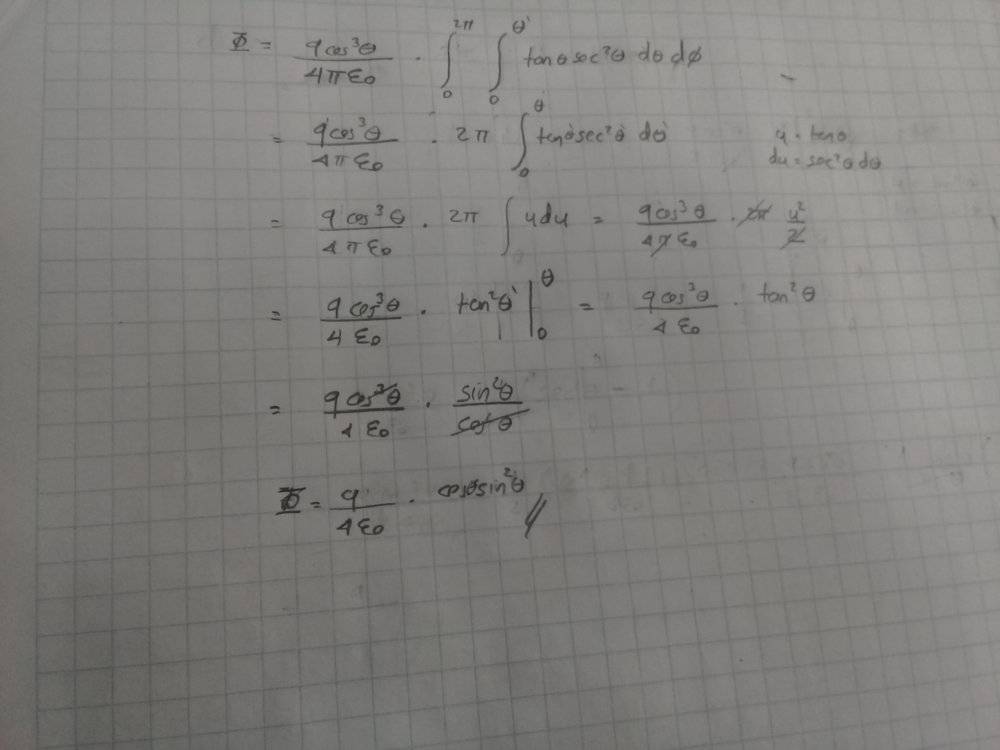 Φ = q cos³θ / 4πε₀ · ∫₀^2π ∫₀^θ' tanθ sec²θ dθ dϕ
= q cos³θ / 4πε₀ · 2π ∫₀^θ tanθ sec²θ dθ u = tanθ
du = sec²θ dθ
= q cos³θ / 4πε₀ · 2π ∫ u du = q cos³θ / 4πε₀ · 2π u²/2
= q cos³θ / 4ε₀ · tan²θ' |₀^θ = q cos³θ / 4ε₀ · tan²θ
= q cos³θ / 4ε₀ · sin²θ / cos²θ
Φ = q / 4ε₀ · cosθ sin²θ